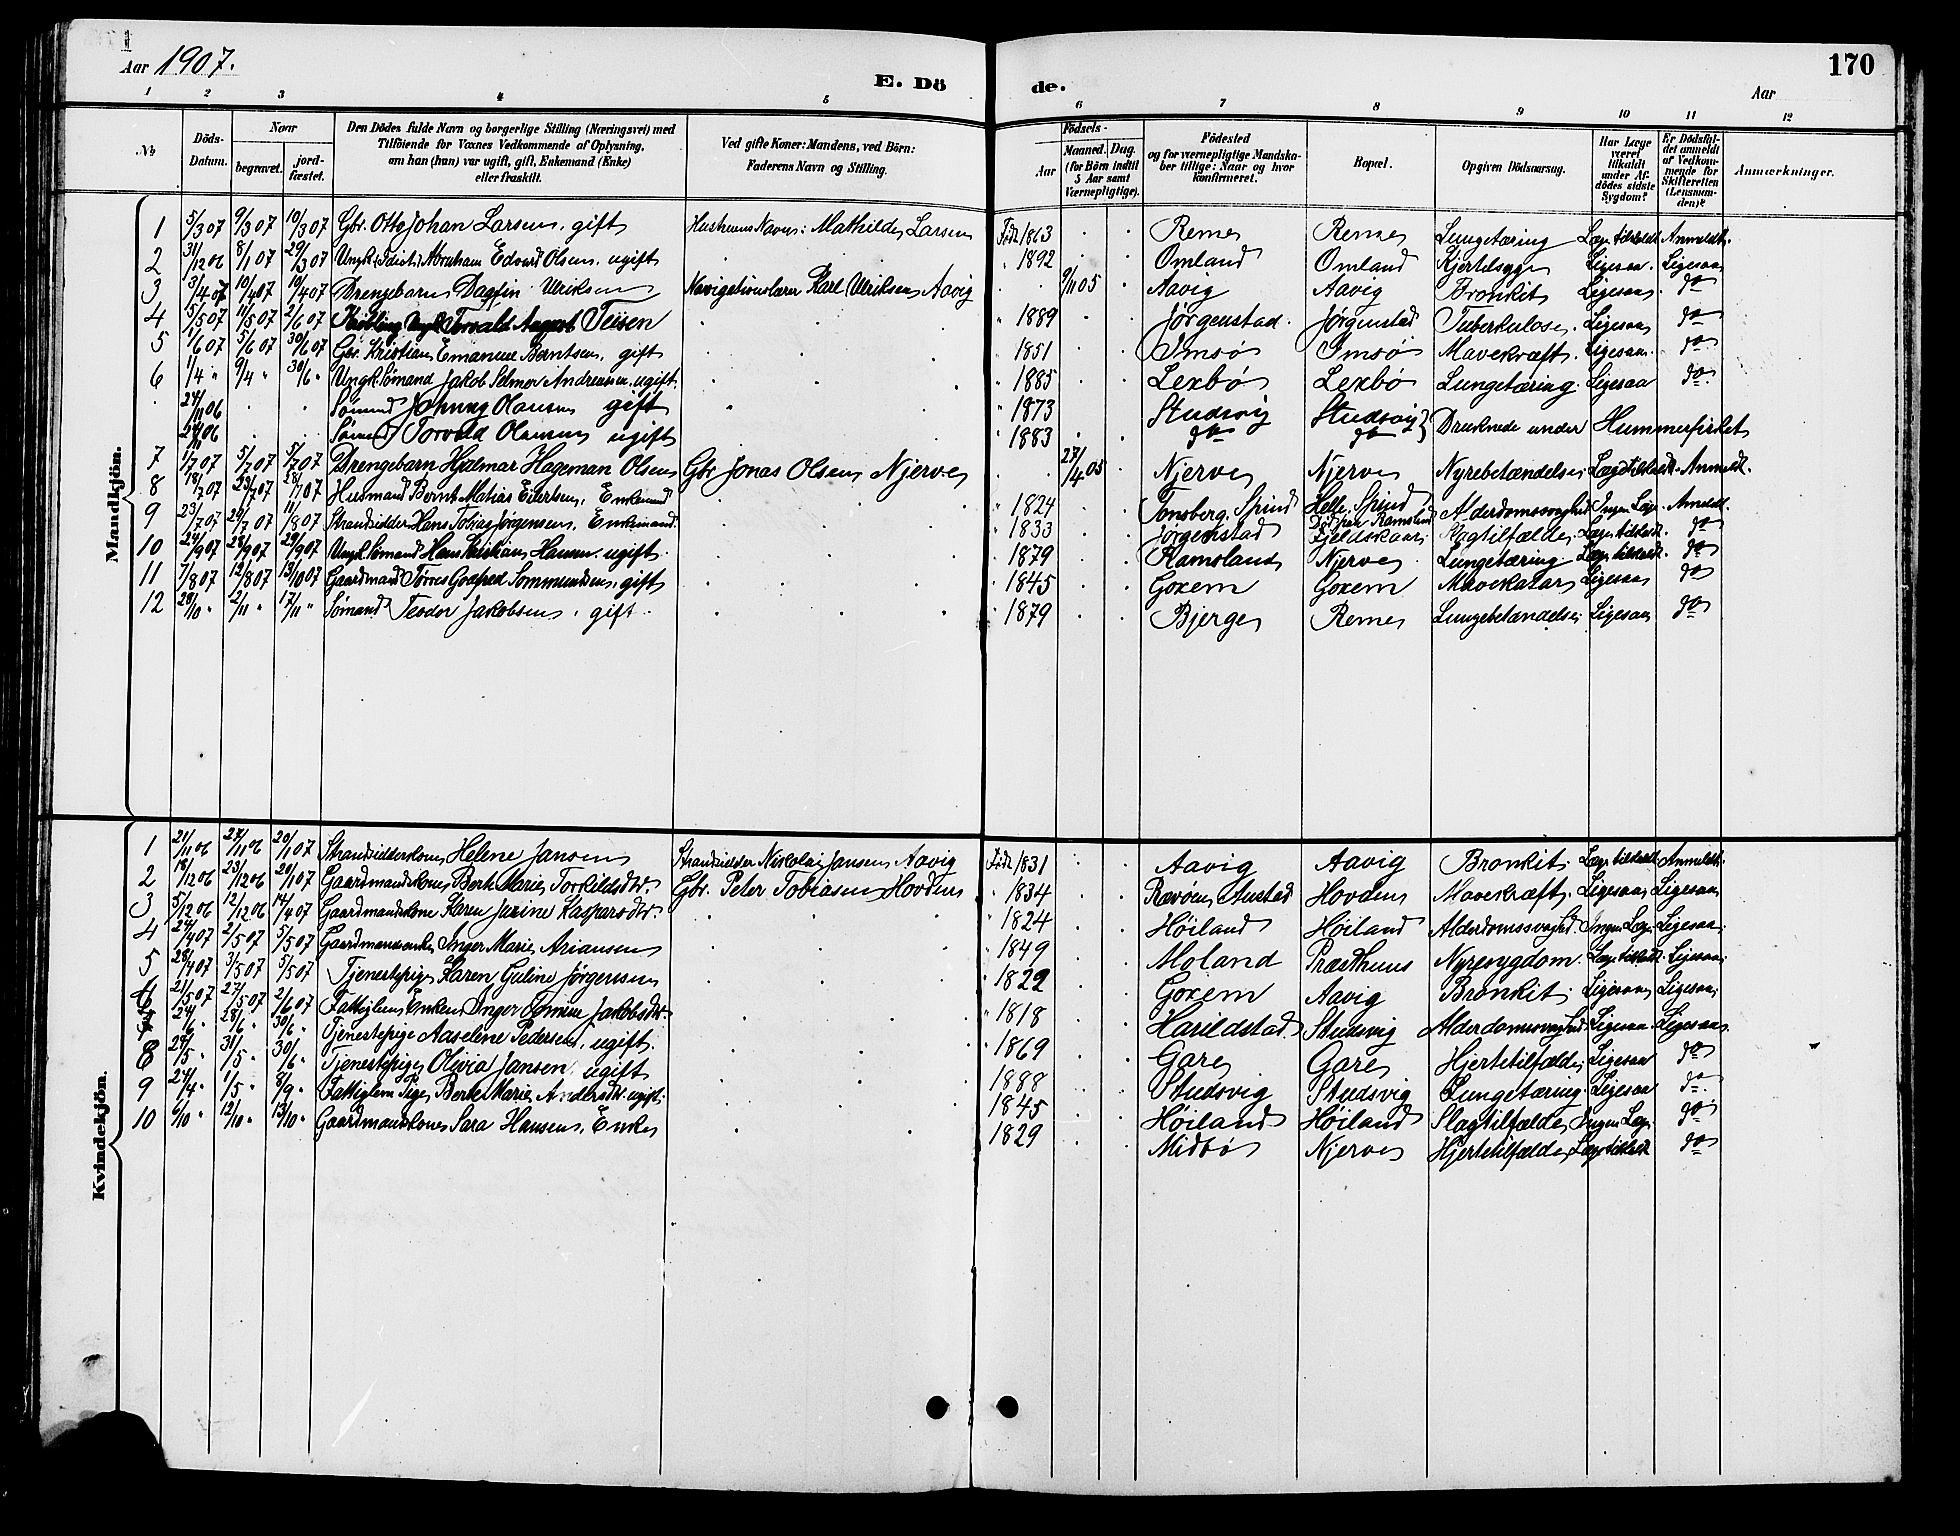 Aar 1907.
E. Dö de.
170
Aar
1 2 3 4 5 6 7 8 9 10 11 12
No
Döds-Datum.
Naar
begravet.
jordfæstet.
Den Dödes fulde Navn og borgerlige Stilling (Næringsvei) med
Tilföiende for Voxnes Vedkommende af Oplysning,
om han (hun) var ugift, gift, Enkemand (Enke)
eller fraskilt.
Ved gifte Koner: Mandens, ved Börn:
Faderens Navn og Stilling.
Födsels-
Aar
Maaned. Dag.
(for Börn indtil
5 Aar samt
Værnepligtige).
Födested
og for værnepligtige Mandska-
ber tillige: Naar og hvor
konfirmeret.
Bopæl.
Opgiven Dödsaarsag.
Har Læge
været
tilkaldt
under Af-
dödes sidste
Sygdom?
Er Dödsfal-
det anmeldt
af Vedkom-
mende for
Skifteretten
(Lensman-
den)?
Anmærkninger.
Mandkjön.
1 5/3 07 9/3 07 10/3 07 Gbr. Otto Johan Larsen, gift Hustruens Navn: Mathilde Larsen Född 1863 Reme Reme Lungetæring Læge tilkaldt Anmeldt.
2 31/12 06 8/1 07 29/3 07 Ungk. (Idiot) Abraham Edvard Olsen, ugift 1892 Omland Omland Kjertelsyge Ligesaa. Ligesaa
3 3/4 07 10/4 07 10/4 07 Drengebarn Dagfin Ulriksen Navigationslærer Karl Ulriksen Aavig 9/11 05 Aavig Aavig Bronkit Ligesaa. do
4 5/5 07 11/5 07 2/6 07 Ungk Torvald August Teisen 1889 Jørgenstad. Jørgenstad Tuberkulose. Ligesaa do
5 1/6 07 5/6 07 30/6 07 Gbr. Kristian Emanuel Berntsen, gift 1851 Imsø Imsø Mavekræft. Ligesaa. do
6 1/4 " 9/4 " 30/6 " Ungk. Sømand Jakob Selmer Andreassen, ugift. 1885 Lexbø Lexbø Lungetæring. Ligesaa do.
24/11 06 Sømand Johnny Olausen gift 1873 Studsvig Studsvig }
24/11 06 Sømand Torvald Olausen ugift 1883 do do Druknede under Hummerfisket
7 1/7 07 5/7 07 5/7 07 Drengebarn Hjalmar Hageman Olsen Gbr. Jonas Olsen Njerve 27/4 05 Njerve Njerve Nyrebetændelse Læge tilkaldt. Anmeldt.
8 18/7 07 23/7 07 28/7 07 Husmand Bernt Matias Eilertsen, Enkemand 1824 Tonsberg, Spind Helle, Spind Alderdomssvaghed Ingen Læge Anmeldt.
9 23/7 07 29/7 07 11/8 07 Strandsidder Hans Tobias Jørgensen, Enkemand. 1833 Jørgenstad Fjeldskaar Slagtilfælde Læge tilkaldt. do
10 24/9 07 28/9 07 29/9 07 Ungk. Sømand Hans Kristian Hansen. ugift. 1879 Ramsland Njerve Lungetæring Læge tilkaldt. do
11 7/8 07 12/8 07 13/10 07 Gaardmand Torres Godfred Sommundsen, gift 1845 Goxem Goxem Mavekatar Ligesaa do
12 28/10 " 2/11 " 17/11 " Sømand Teodor Jakobsen, gift. 1879 Bjerge Reme Lungebetændelse Ligesaa, do
Kvindekjön.
1 21/11 06 27/11 06 20/1 07 Strandsidderkone Helene Jansen Strandsidder Nikolai Jansen Aavig Född 1831 Aavig Aavig Bronkit. Læge tilkaldt Anmeldt.
2 18/12 06 23/12 06 20/1 07 Gaardmandskone Berte Marie Torkildsdtr. Gbr. Peter Tobiasen Hovden 1834 Rævøen, Austad Hovden Mavekræft. Ligesaa, Ligesaa,
3 5/12 06 12/12 06 14/4 07 Gaardmandskone Karen Jurine Kaspersdtr. 1824 Høiland Høiland Alderdomssvaghed. Ingen Læge Ligesaa,
4 24/4 07 2/5 07 5/5 07 Gaardmandsenke Inger Marie Ariansen 1849 Moland Præsthuus Nyresygdom. Læge tilkaldt. Ligesaa,
5 28/4 07 3/5 07 5/5 07 Tjenestepige Karen Guline Jørgensen 1822 Goxem Aavig Bronkit. Ligesaa, Ligesaa,
6 21/5 07 27/5 07 2/6 07 Fattiglem Enken Inger Tomine Jakobsdtr. 1818 Harildstad Studsvig Alderdomssvaghed Ligesaa. Ligesaa
7 24/6 " 28/6 " 30/6 " Tjenestepige Aaselene Pedersen, ugift. 1869 Gare Gare Hjertetilfælde Ligesaa do
8 27/5 " 31/5 " 30/6 " Tjenestepige Olivia Jansen, ugift 1888 Studsvig Studsvig Lungetæring. Ligesaa do.
9 24/4 " 1/5 " 8/9 " Fattiglem Pige Berte Marie Andersdtr. ugift. 1845 Høiland Høiland Slagtilfælde Ingen Læge do
10 6/10 " 12/10 " 13/10 " Gaardmandskone Sara Hansen, Enke 1829 Midbø Njerve Hjertetilfælde Læge tilkaldt do